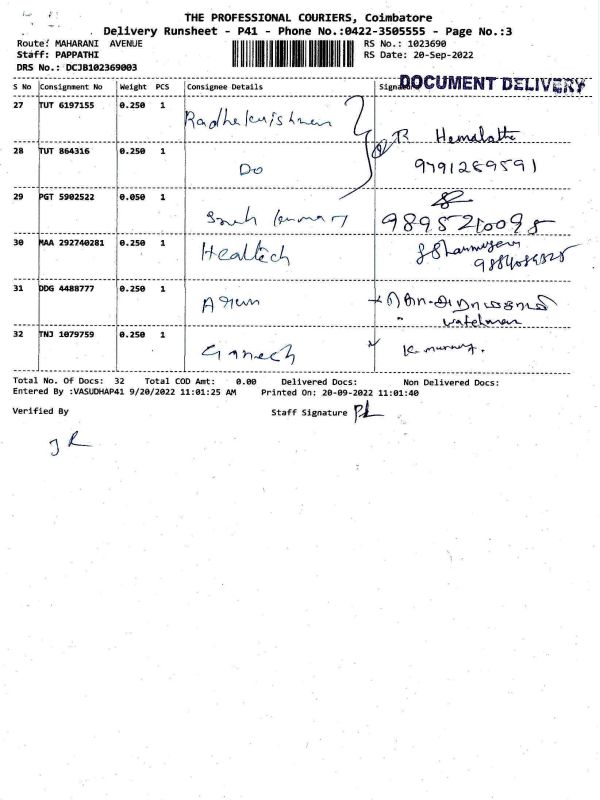 THE PROFESSIONAL COURIERS, Coimbatore
Delivery Runsheet - P41 - Phone No.:0422-3505555 - Page No.:3
Route: MAHARANI AVENUE
RS No.: 1023690
Staff: PAPPATHI
RS Date: 20-Sep-2022
DRS No.: DCJB102369003
DOCUMENT DELIVERY
S No Consignment No Weight PCS Consignee Details
27 TUT 6197155 0.250 1 Radhakrishnan Hemalatha
28 TUT 864316 0.250 1 Do 9791289591
29 PGT 5902522 0.050 1 kumar 9895210095
30 MAA 292740281 0.250 1 Healtech
31 DDG 4488777 0.250 1
watchman
32 TNJ 1079759 0.250 1 Ganesh K.
Total No. Of Docs: 32 Total COD Amt: 0.00 Delivered Docs: Non Delivered Docs:
Entered By :VASUDHAP41 9/20/2022 11:01:25 AM Printed On: 20-09-2022 11:01:40
Verified By Staff Signature